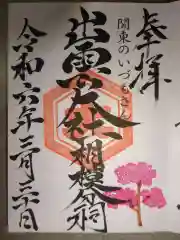 奉拝
関東のいづもさん
出雲大社相模分祠
令和六年二月三十日